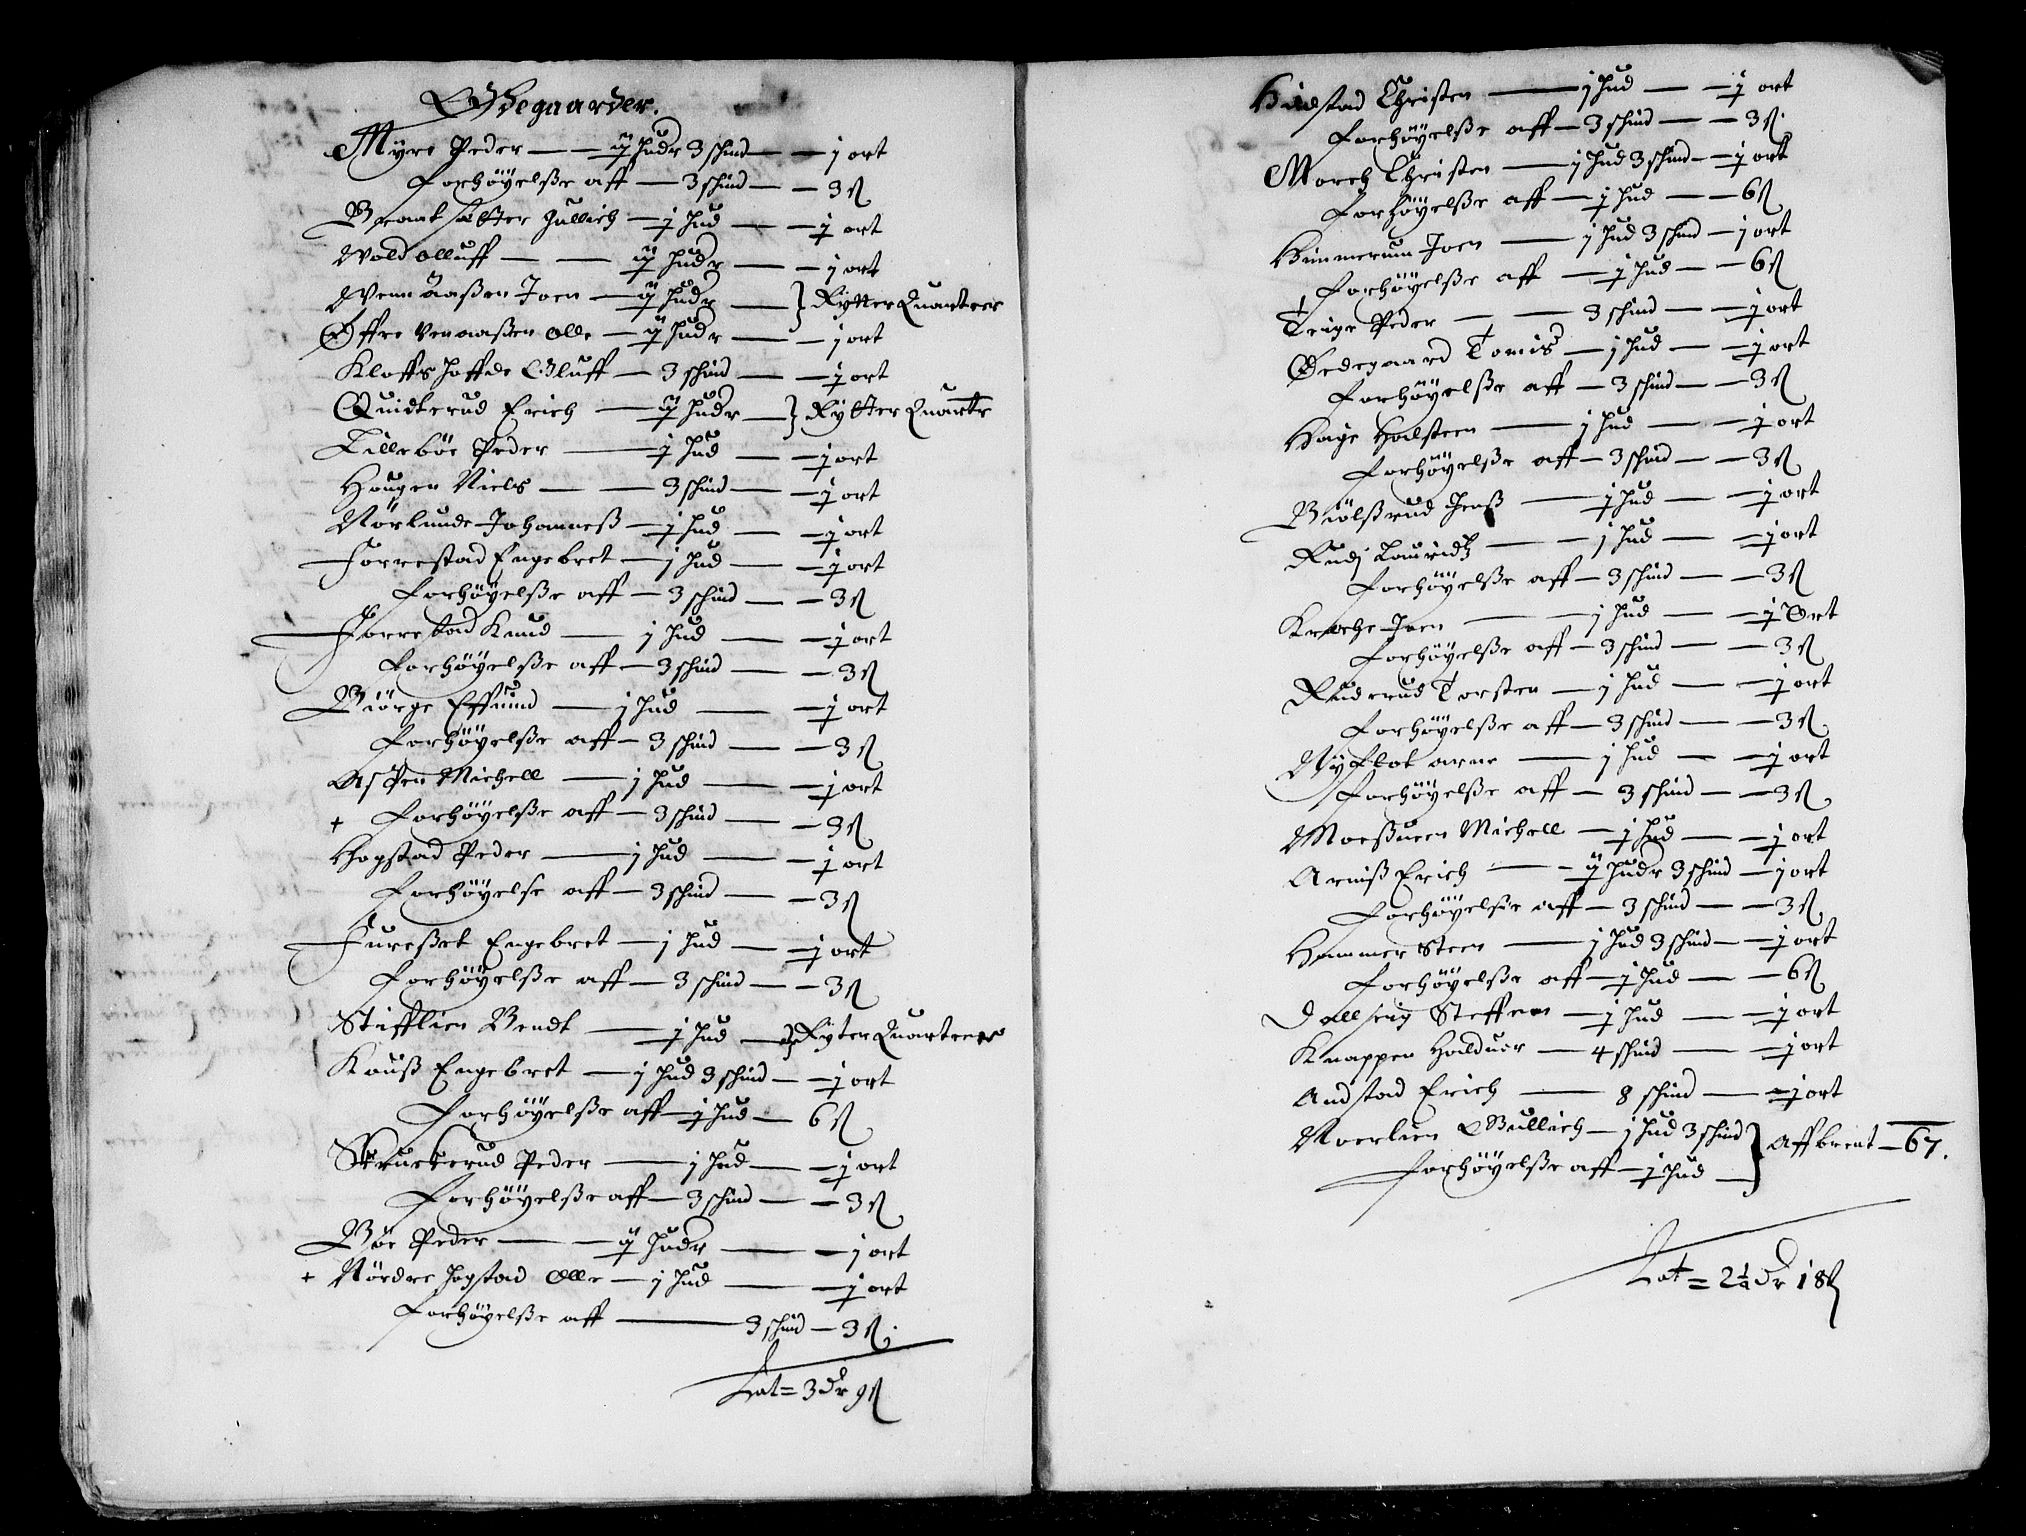 Ødegaarder.
Myre Peder — ij Hudr 3 schind — j ort
forhöyelsße aff — 3 schind — 3 ß
Braat Gullich — j Hud — j ort
Wold Olluff — ij Hudr — j ort
Wennaaßen Joen — ij Hudr — } Rytter Quarteer
Øffre Venaaßen Olle — ij Hudr — j ort
Kloffshoffde Oluff — 3 schind — j ort
Quidterud Erich — ij Hudr — } Rytter Quartr
Lilleböe Peder — j Hud — j ort
Hougen Niels — 3 schind — j ort
Nörlunde Johanneß — j Hud — j ort
Forrestad Engebret — j Hud — j ort
forhöyelsße aff — 3 schind — 3 ß
Forrestad Knud — j Hud — j ort
forhöyelsße aff — 3 schind — 3 ß
Biörge Effuind — j Hud — j ort
forhöyelsße aff — 3 schind — 3 ß
Aspen Michell — j Hud — j ort
+ forhöyelsße aff — 3 schind — 3 ß
Hogstad Peder — j Hud — j ort
forhöyelse aff — 3 schind — 3 ß
Fureßet Engebret — j Hud — j ort
forhöyelsße aff — 3 schind — 3 ß
Stifflien Bendt — j Hud — } Ryter Quarteer
Kauß Engebret — j Hud 3 schind — j ort
forhöyelsße aff — j Hud — 6 ß
Skruckerud Peder — j Hud — j ort
forhöyelsße aff — 3 schind — 3 ß
Böe Peder — ij Hudr — j ort
+ Nördre Hogstad Olle — j Hud — j ort
forhöyelsße aff — 3 schind — 3 ß.
Lat = 3 dr 9 ß
Christen — j Hud — j ort
forhöyelsße aff — 3 schind — 3 ß.
Morch Christen — j Hud 3 schind — j ort
forhöyelsße aff — j Hud — 6 ß
Himmerum Joen — j Hud 3 schind — j ort
forhöyelsße aff — j Hud — 6 ß
+
Teige Peder — 3 schind — j ort
Ødegaard Tomis — j Hud — j ort
forhöyelsße aff — 3 schind — 3 ß
Hage Halsteen — j Hud — j ort
forhöyelsße aff — 3 schind — 3 ß
Biölßrud Jenß — j Hud — j ort
Rudj Lauridtz — j Hud — j ort
forhöyelsße aff — 3 schind — 3 ß
Kroche Joen — j Hud — j Ort
forhöyelsße aff — 3 schind — 3 ß
Ruderud Torsten — j Hud — j ort
forhöyelsße aff — 3 schind — 3 ß
Nyflot Arne — j Hud — j ort
forhöyelsße aff — 3 schind — 3 ß
Moeßueen Michell — j Hud — j ort
Arniß Erich — ij Hudr 3 schind — j ort
forhöyelsße aff — 3 schind — 3 ß
Hammer Steen — j Hud 3 schind — j ort
forhöyelsße aff — j Hud — 6 ß
Dallseig Steffen — j Hud — j ort
Knappen Halduor — 4 schind — j ort
Andstad Erich — 8 schind — j ort
Noerlien Gullich — j Hud 3 schind } Affbrent — 67.
forhöyelsße aff — j Hud —
Lat = 2½ dr 18 ß